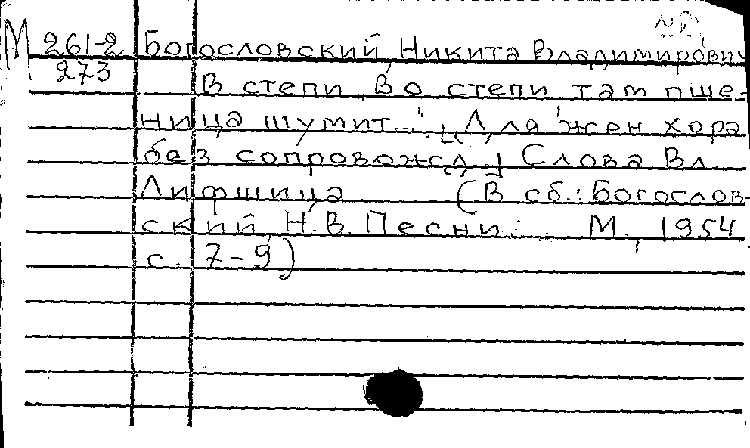 М 261-2 Богословский, Никита Владимирович
273 В степи, во степи там пше-
ница шумит... [Для жен хора
без сопровожд.] Слова Вл.
Лифшица (В сб.: Богослов-
ский, Н.В. Песни... М., 1954,
с. 7-9)